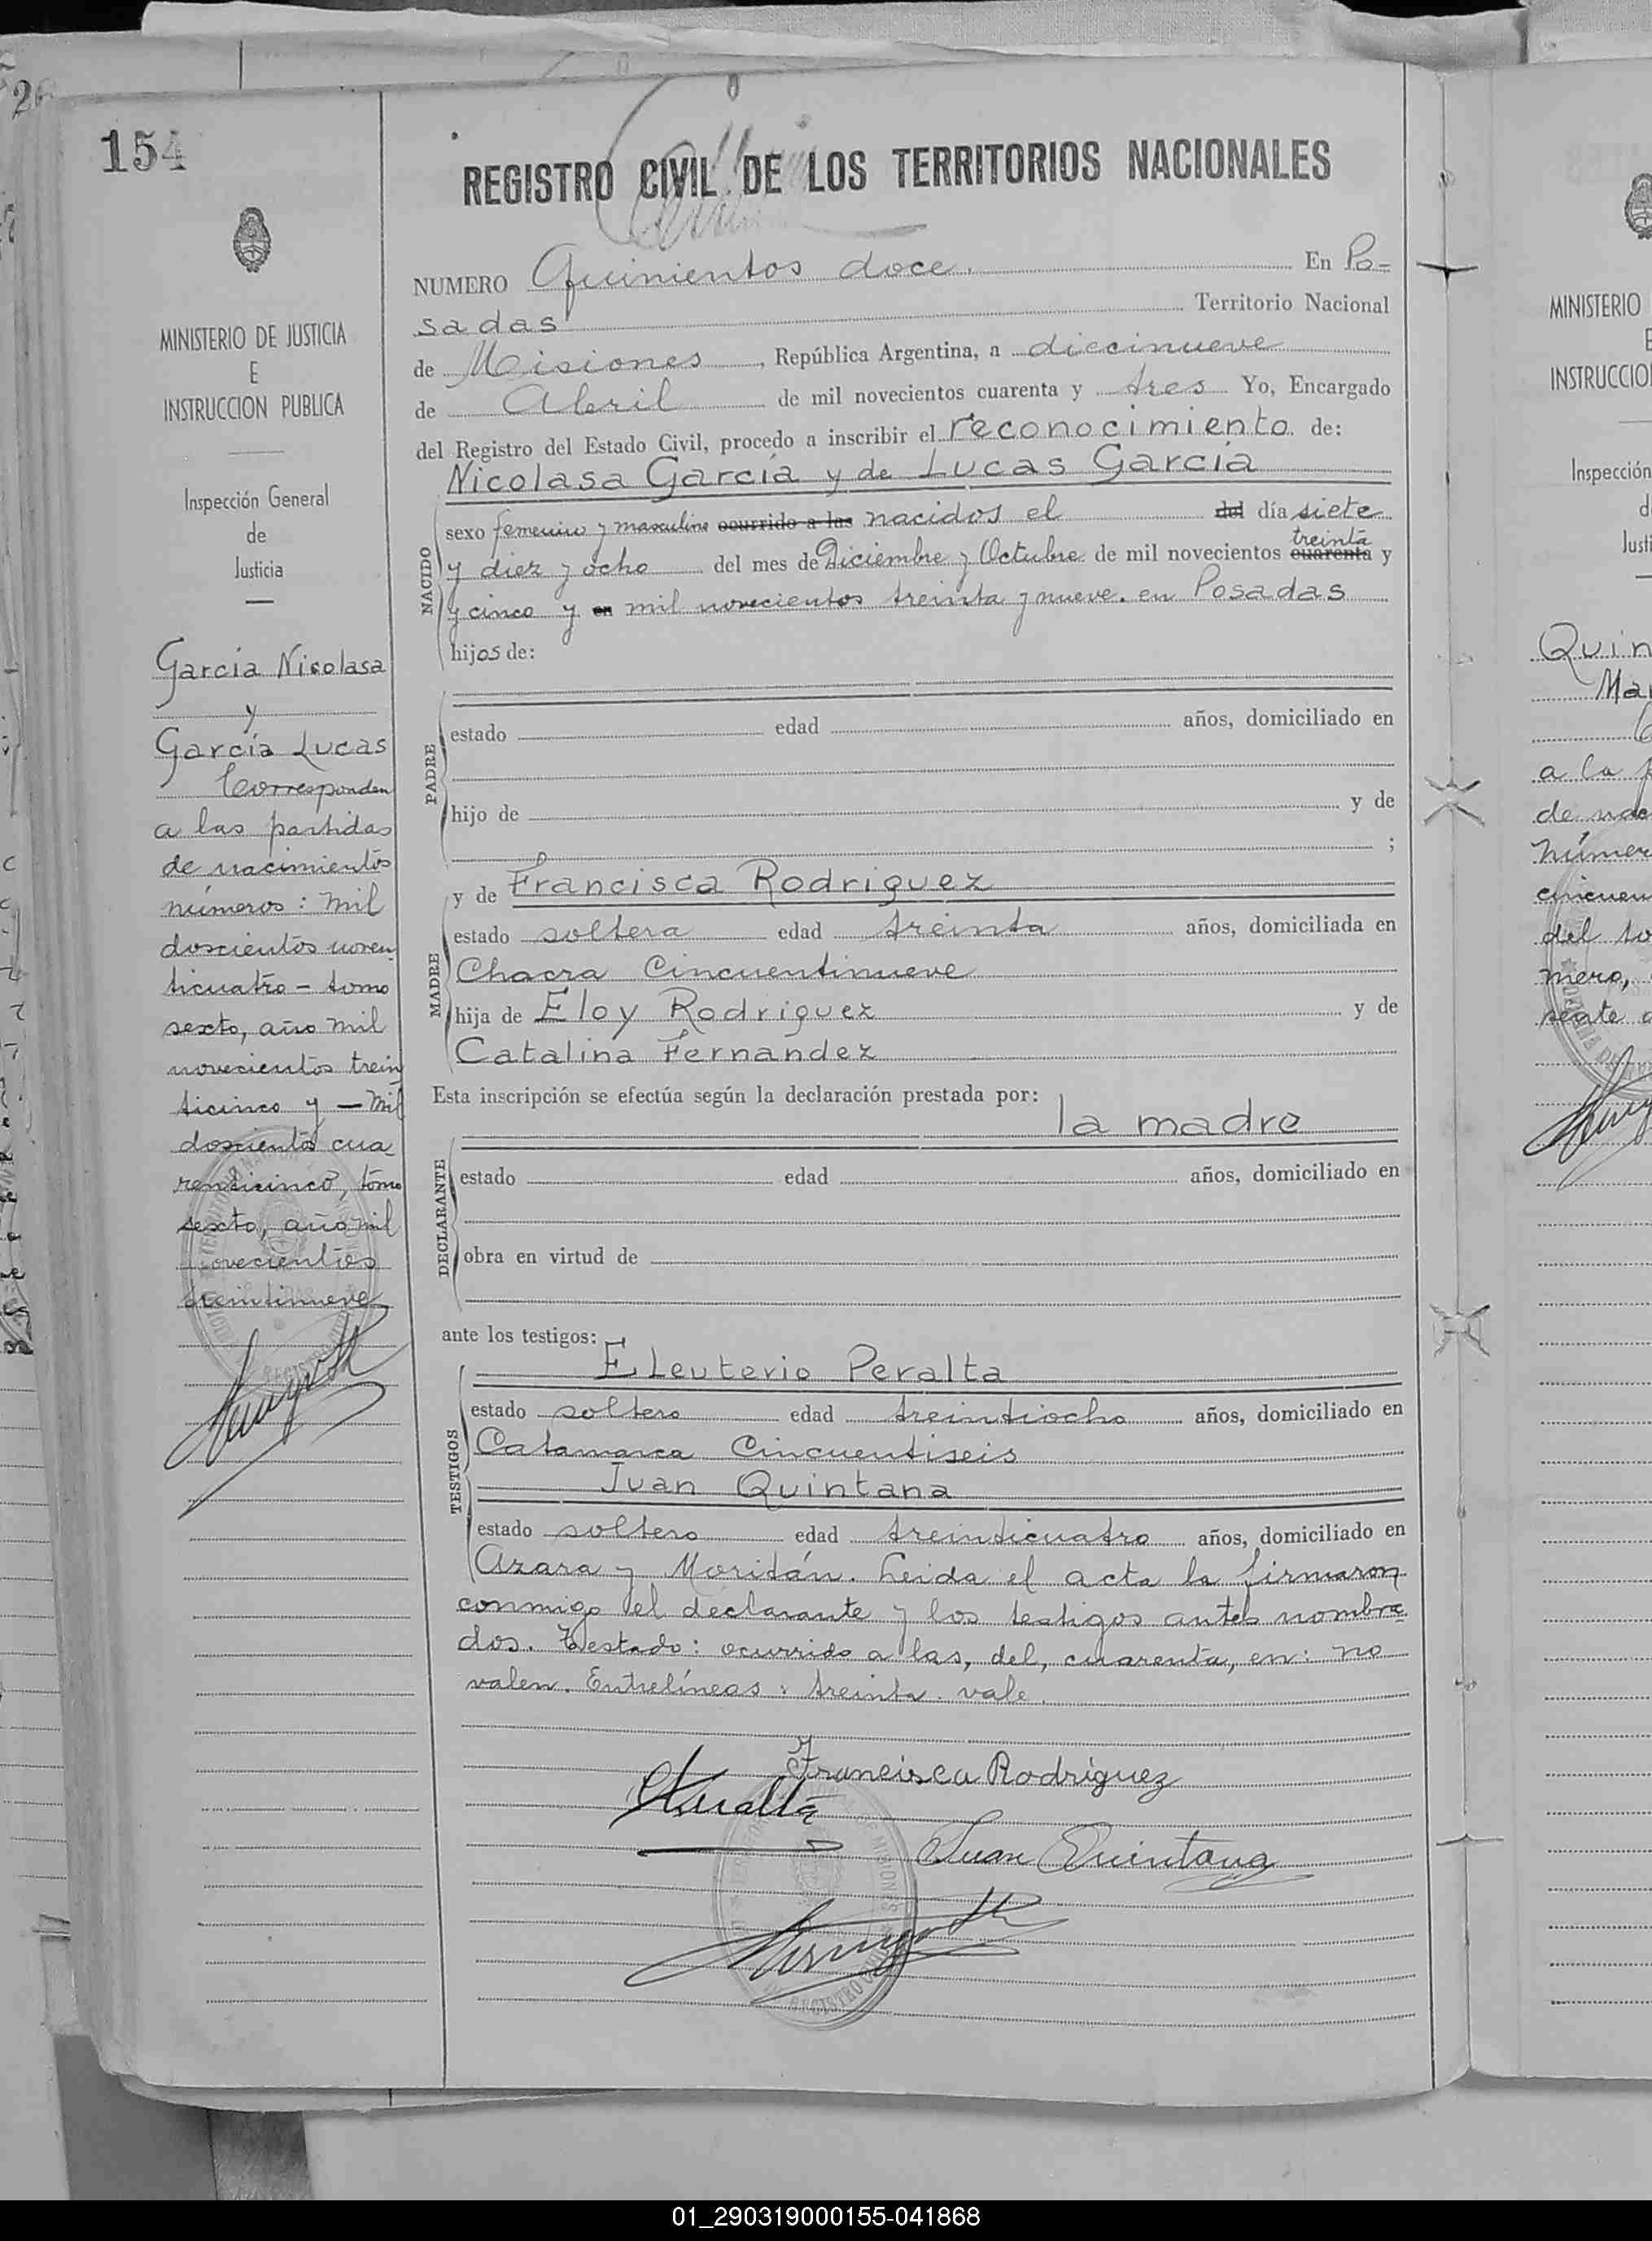 154
REGISTRO CIVIL DE LOS TERRITORIOS NACIONALES
MINISTERIO DE JUSTICIA
E
INSTRUCCION PUBLICA
Inspección General
de
Justicia
García Nicolasa
y
García Lucas
Corresponden
a las partidas
de nacimientos
números: mil
doscientos noven
ticuatro - tomo
sexto, año mil
novecientos trein
ticinco y - mil
doscientos cua-
renticinco, tomo
sexto, año mil
novecientos
treintinueve
NUMERO Quinientos doce. En Po-
sadas Territorio Nacional
de Misiones, República Argentina, a diecinueve
de Abril de mil novecientos cuarenta y tres Yo, Encargado
del Registro del Estado Civil, procedo a inscribir el reconocimiento de:
Nicolasa García y de Lucas García
NACIDO
sexo femenino y masculino ocurrido a las nacidos el del día siete
treinta
y diez y ocho del mes de Diciembre y Octubre de mil novecientos cuarenta y
y cinco y en mil novecientos treinta y nueve. en Posadas
hijos de:
PADRE
estado edad años, domiciliado en
hijo de y de
;
MADRE
y de Francisca Rodriguez
estado soltera edad treinta años, domiciliada en
Chacra Cincuentinueve
hija de Eloy Rodriguez y de
Catalina Fernandez
Esta inscripción se efectúa según la declaración prestada por:
la madre
DECLARANTE
estado edad años, domiciliado en
obra en virtud de
ante los testigos:
TESTIGOS
Eleuterio Peralta
estado soltero edad treintiocho años, domiciliado en
Catamarca Cincuentiseis
Juan Quintana
estado soltero edad treinticuatro años, domiciliado en
Azara y Moritán. Leida el acta la firmaron
conmigo el declarante y los testigos antes nombra-
dos. Testado: ocurrido a las, del, cuarenta, en: no
valen. Entrelíneas: treinta. vale.
Francisca Rodriguez
EPeralta
Juan Quintana
MINISTERIO
E
INSTRUCCIO
Inspección
d
Justi
Quin
Mar
a la p
de nac
númer
cincuen
del to
mero,
01_290319000155-041868